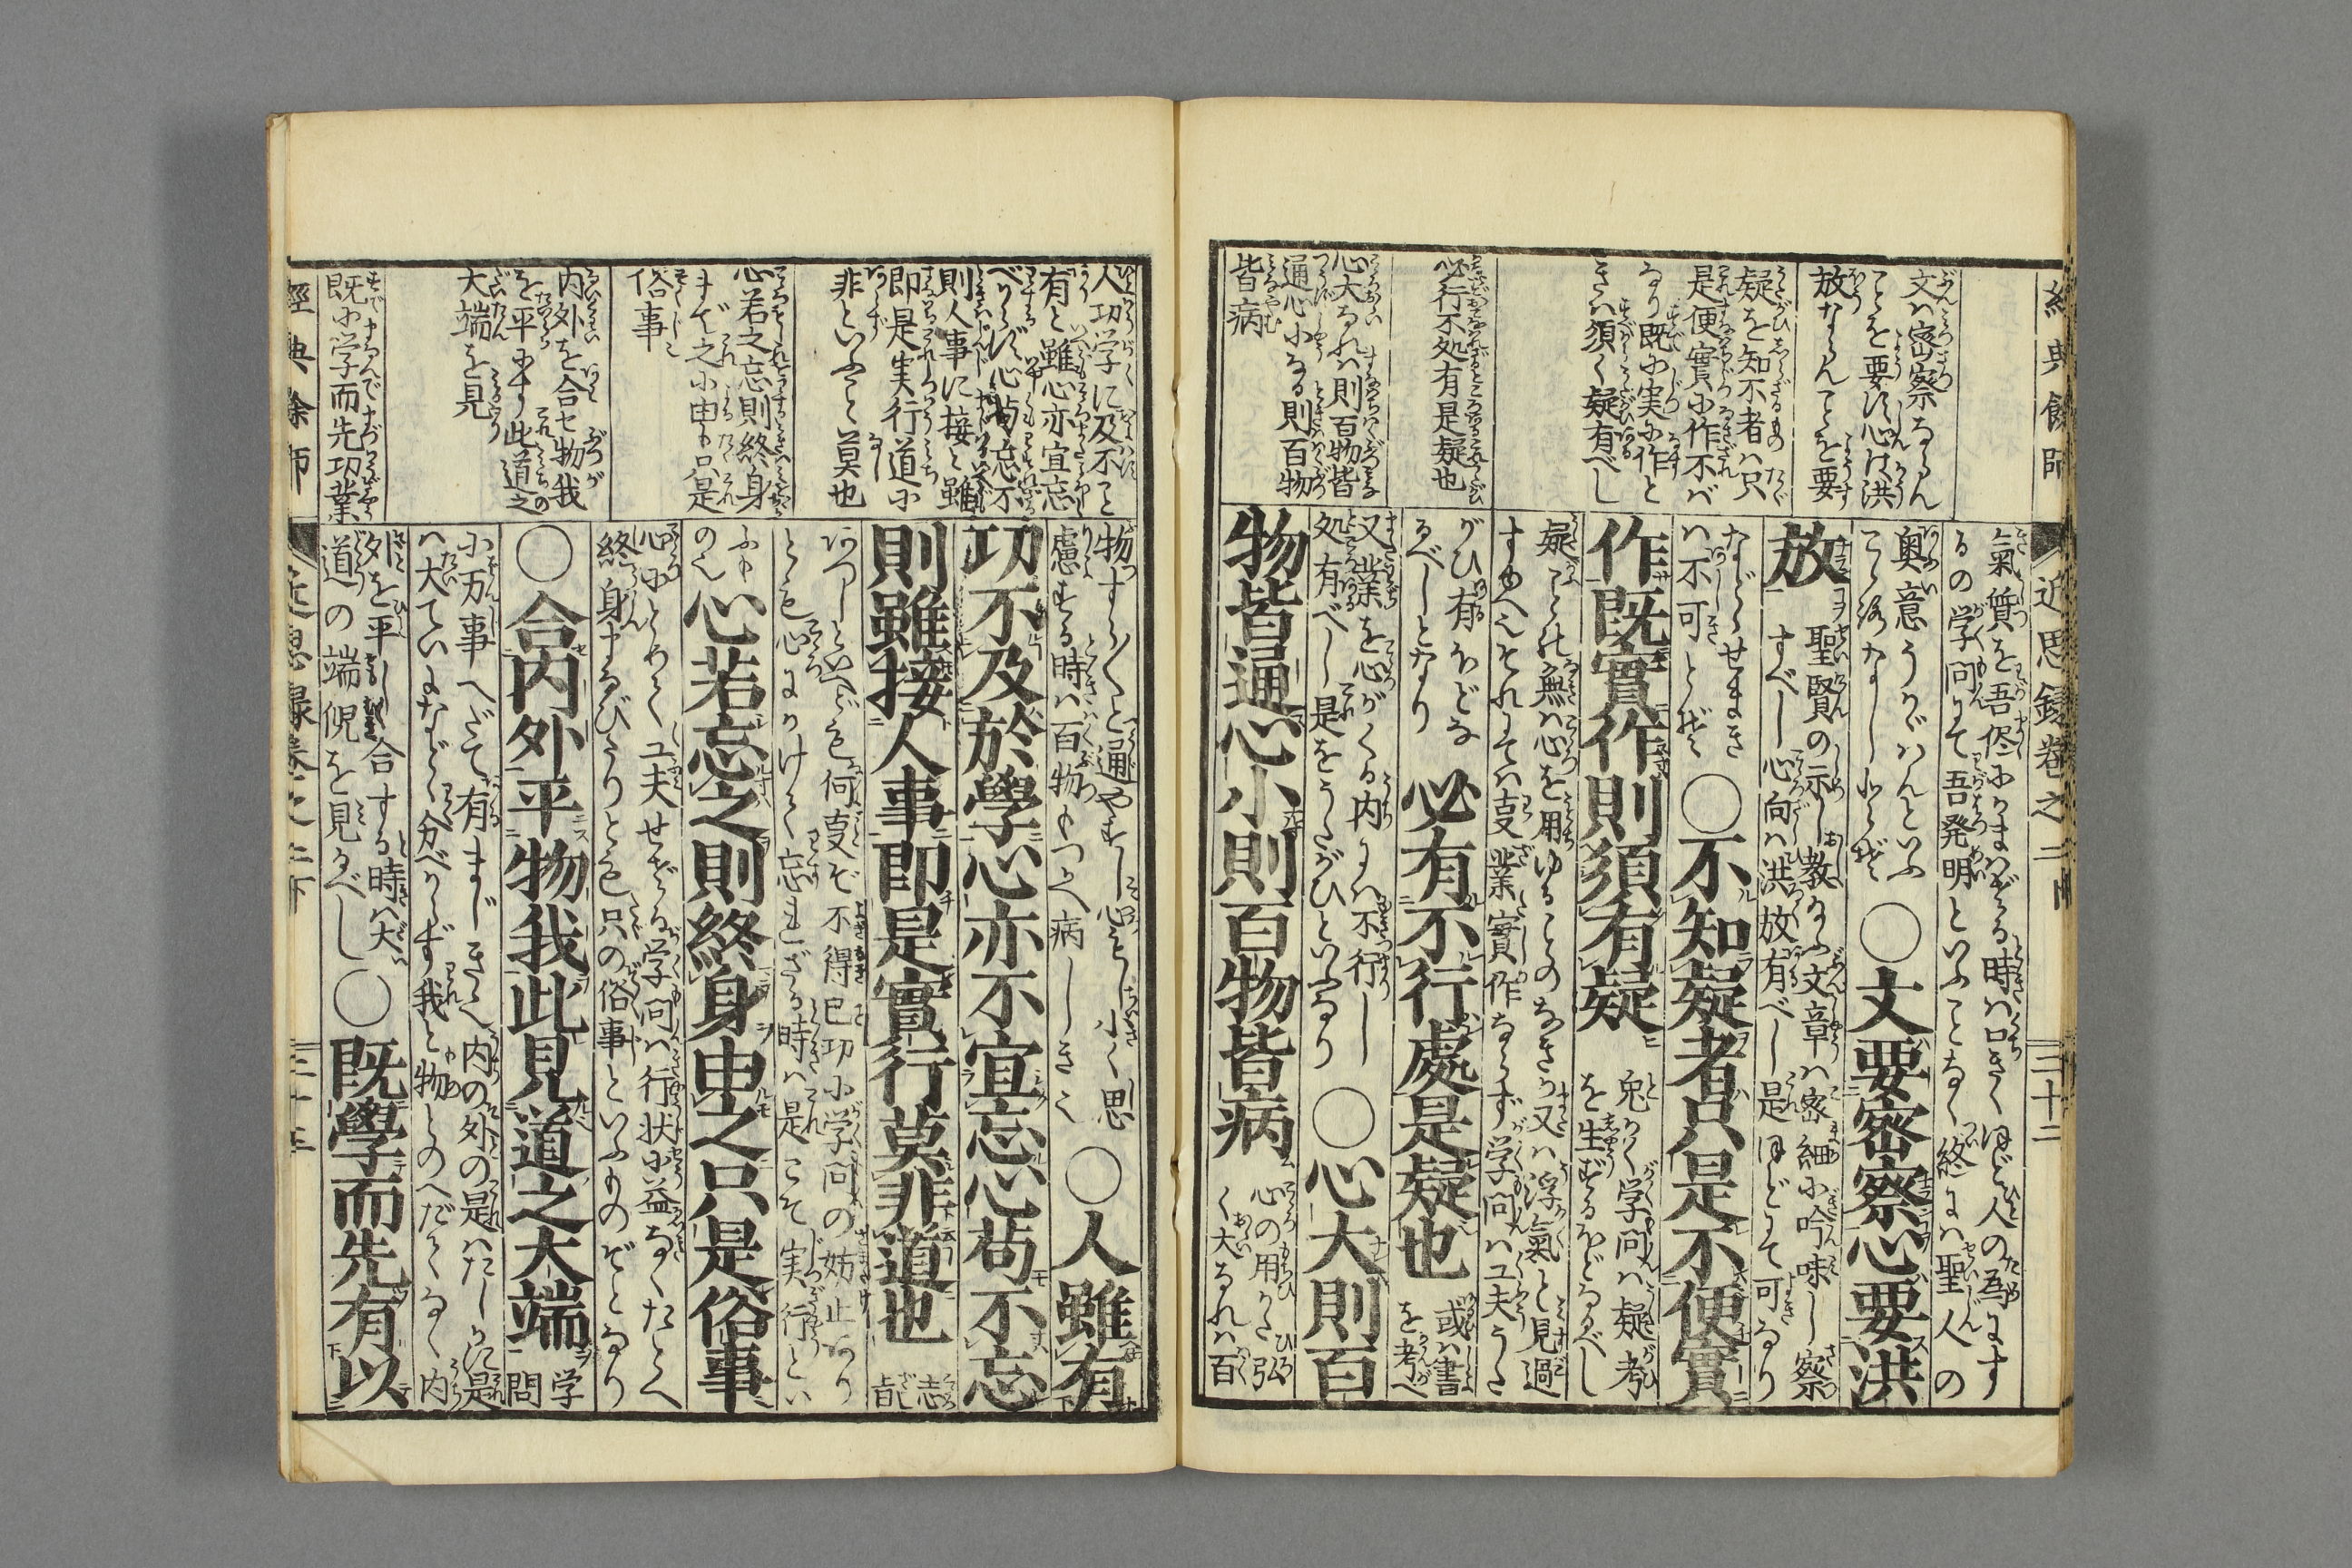 經典餘師
近思録巻之二下
三十二
文ハ密察ならん
ことを要す心は洪
放ならんことを要す
疑を知不者ハ只
是便實に作不バ
なり既に実に作と
きハ須く疑有べし
必行不処有是疑也
心大なれハ則百物皆
通心小なる則百物
皆病
氣質を吾侭にかまはざる時ハ口きくほど人の為にす
るの学問にて吾発明といふことなく終にハ聖人の
奥意うかゞハんといふ
ところなしとぞ
〇文要密察心要洪
放
聖賢の示し教なふ文章ハ密細に吟味し察
すべし心向ハ洪放有べし是ほどにて可なり
なじらせまき
ハ不可とぞ
〇不知疑者只是不便實
作既實作則須有疑
兎かく学問ハ疑考
を生ずるほどなるべし
疑ことの無ハ心を用ゆることのなきか又ハ浮氣と見過
すゆへそれにてハ支業實作ならず学問ハ工夫うた
がひ有ほどな
るべしとなり
必有不行處是疑也
或ハ書
を考へ
又業を心がくる内にハ不行し
処有べし是をうたがひといふなり
〇心大則百
物皆通心小則百物皆病
心の用かた弘
く大なれハ百
人功学に及不こと
有と雖心亦宜忘
べからず心苟忘不
則人事に接と雖
即是実行道に
非といふこと莫也
心若之忘則終身
まで之に由も只是
俗事
内外を合せ物我
を平にす此道之
大端を見
既に学而先功業
物すら〳〵と通やすし心もし小く思
慮する時ハ百物もつかへ病しきく
〇人雖有
功不及於學心亦不宜忘心苟不忘
則雖接人事即是實行莫非道也
志
旨
あつしといへども何支ぞ不得已功に学問の妨止あり
とも心にかけく忘れざる時ハ是こそ実行とい
ふも
のく
心若忘之則終身由之只是俗事
心にとめく工夫せざる学問ハ行状に益なくたとへ
終身まなびたりとも只の俗事といふものぞとなり
〇合内外平物我此見道之大端
学
問
に万事へだて有まじきく内の外の是ハたしか是
ハ大ていになどく分べからず我と物とのへだてなく内
外を平し合する時ハ大
道の端倪を見るべし
〇既學而先有以
經典餘師
近思録巻之二下
三十三